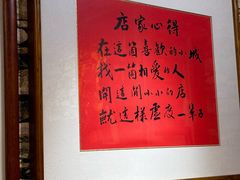 店家心得
在這箇喜歡的小城
找一箇相愛的人
開這間小小的店
就這樣虛度一輩子